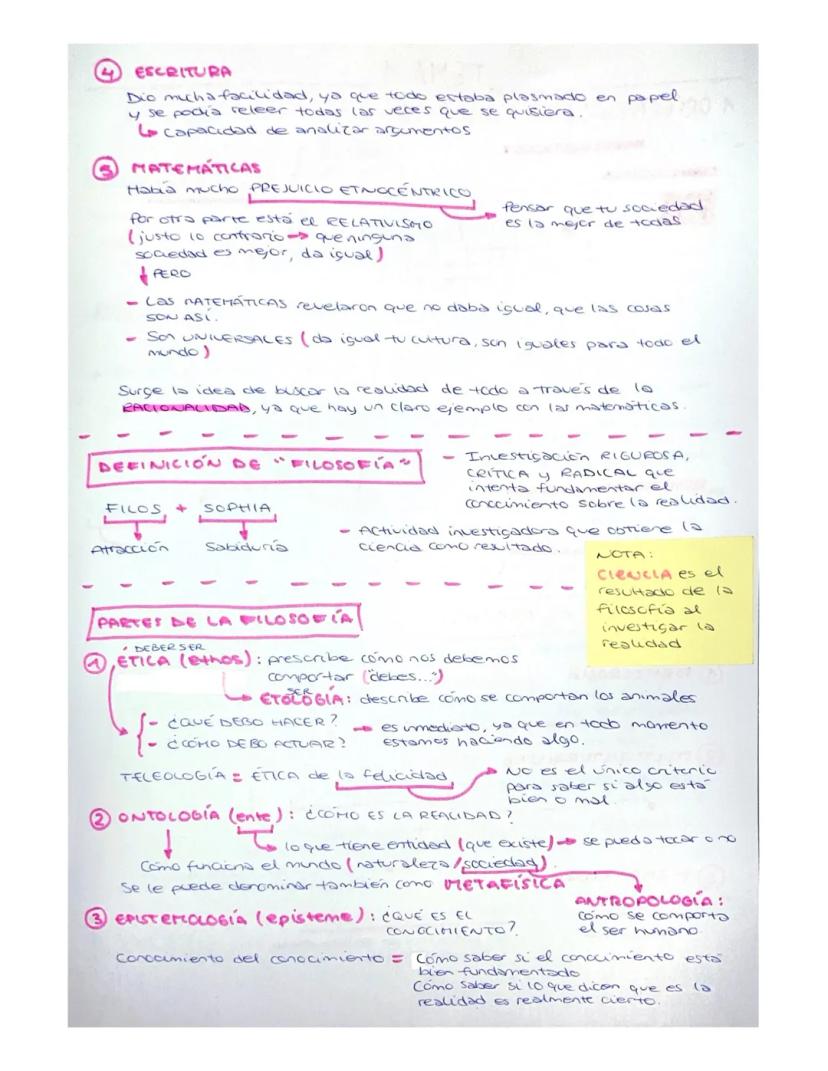 4 ESCRITURA
Dio mucha facilidad, ya que todo estaba plasmado en papel
y se podía releer todas las veces que se quisiera.
↳ capacidad de analizar argumentos
5 MATEMÁTICAS
Había mucho PREJUICIO ETNOCÉNTRICO
→ Pensar que tu sociedad
es la mejor de todas
Por otra parte está el RELATIVISMO
(justo lo contrario → que ninguna
sociedad es mejor, da igual)
↓ PERO
- Las MATEMÁTICAS revelaron que no daba igual, que las cosas
SON ASÍ.
- Son UNIVERSALES (da igual tu cultura, son iguales para todo el
mundo)
Surge la idea de buscar la realidad de todo a través de la
RACIONALIDAD, ya que hay un claro ejemplo con las matemáticas.
DEFINICIÓN DE "FILOSOFÍA"
- Investigación RIGUROSA,
CRÍTICA y RADICAL que
intenta fundamentar el
conocimiento sobre la realidad.
FILOS + SOPHIA
Atracción Sabiduría
- Actividad investigadora que obtiene la
ciencia como resultado.
NOTA:
CIENCIA es el
resultado de la
filosofía al
investigar la
realidad
PARTES DE LA FILOSOFÍA
DEBER SER
1 ÉTICA (ethos): prescribe cómo nos debemos
comportar ("debes...")
SER
→ ETOLOGÍA: describe cómo se comportan los animales
- ¿QUÉ DEBO HACER?
- ¿CÓMO DEBO ACTUAR?
→ es inmediato, ya que en todo momento
estamos haciendo algo.
TELEOLOGÍA = ÉTICA de la felicidad
→ NO es el único criterio
para saber si algo está
bien o mal.
2 ONTOLOGÍA (ente): ¿CÓMO ES LA REALIDAD?
↳ lo que tiene entidad (que existe) → se pueda tocar o no
Cómo funciona el mundo (naturaleza/sociedad)
Se le puede denominar también como METAFÍSICA
ANTROPOLOGÍA:
cómo se comporta
el ser humano
3 EPISTEMOLOGÍA (episteme): ¿QUÉ ES EL
CONOCIMIENTO?
Conocimiento del conocimiento = Cómo saber si el conocimiento está
bien fundamentado
Cómo saber si lo que dicen que es la
realidad es realmente cierto.